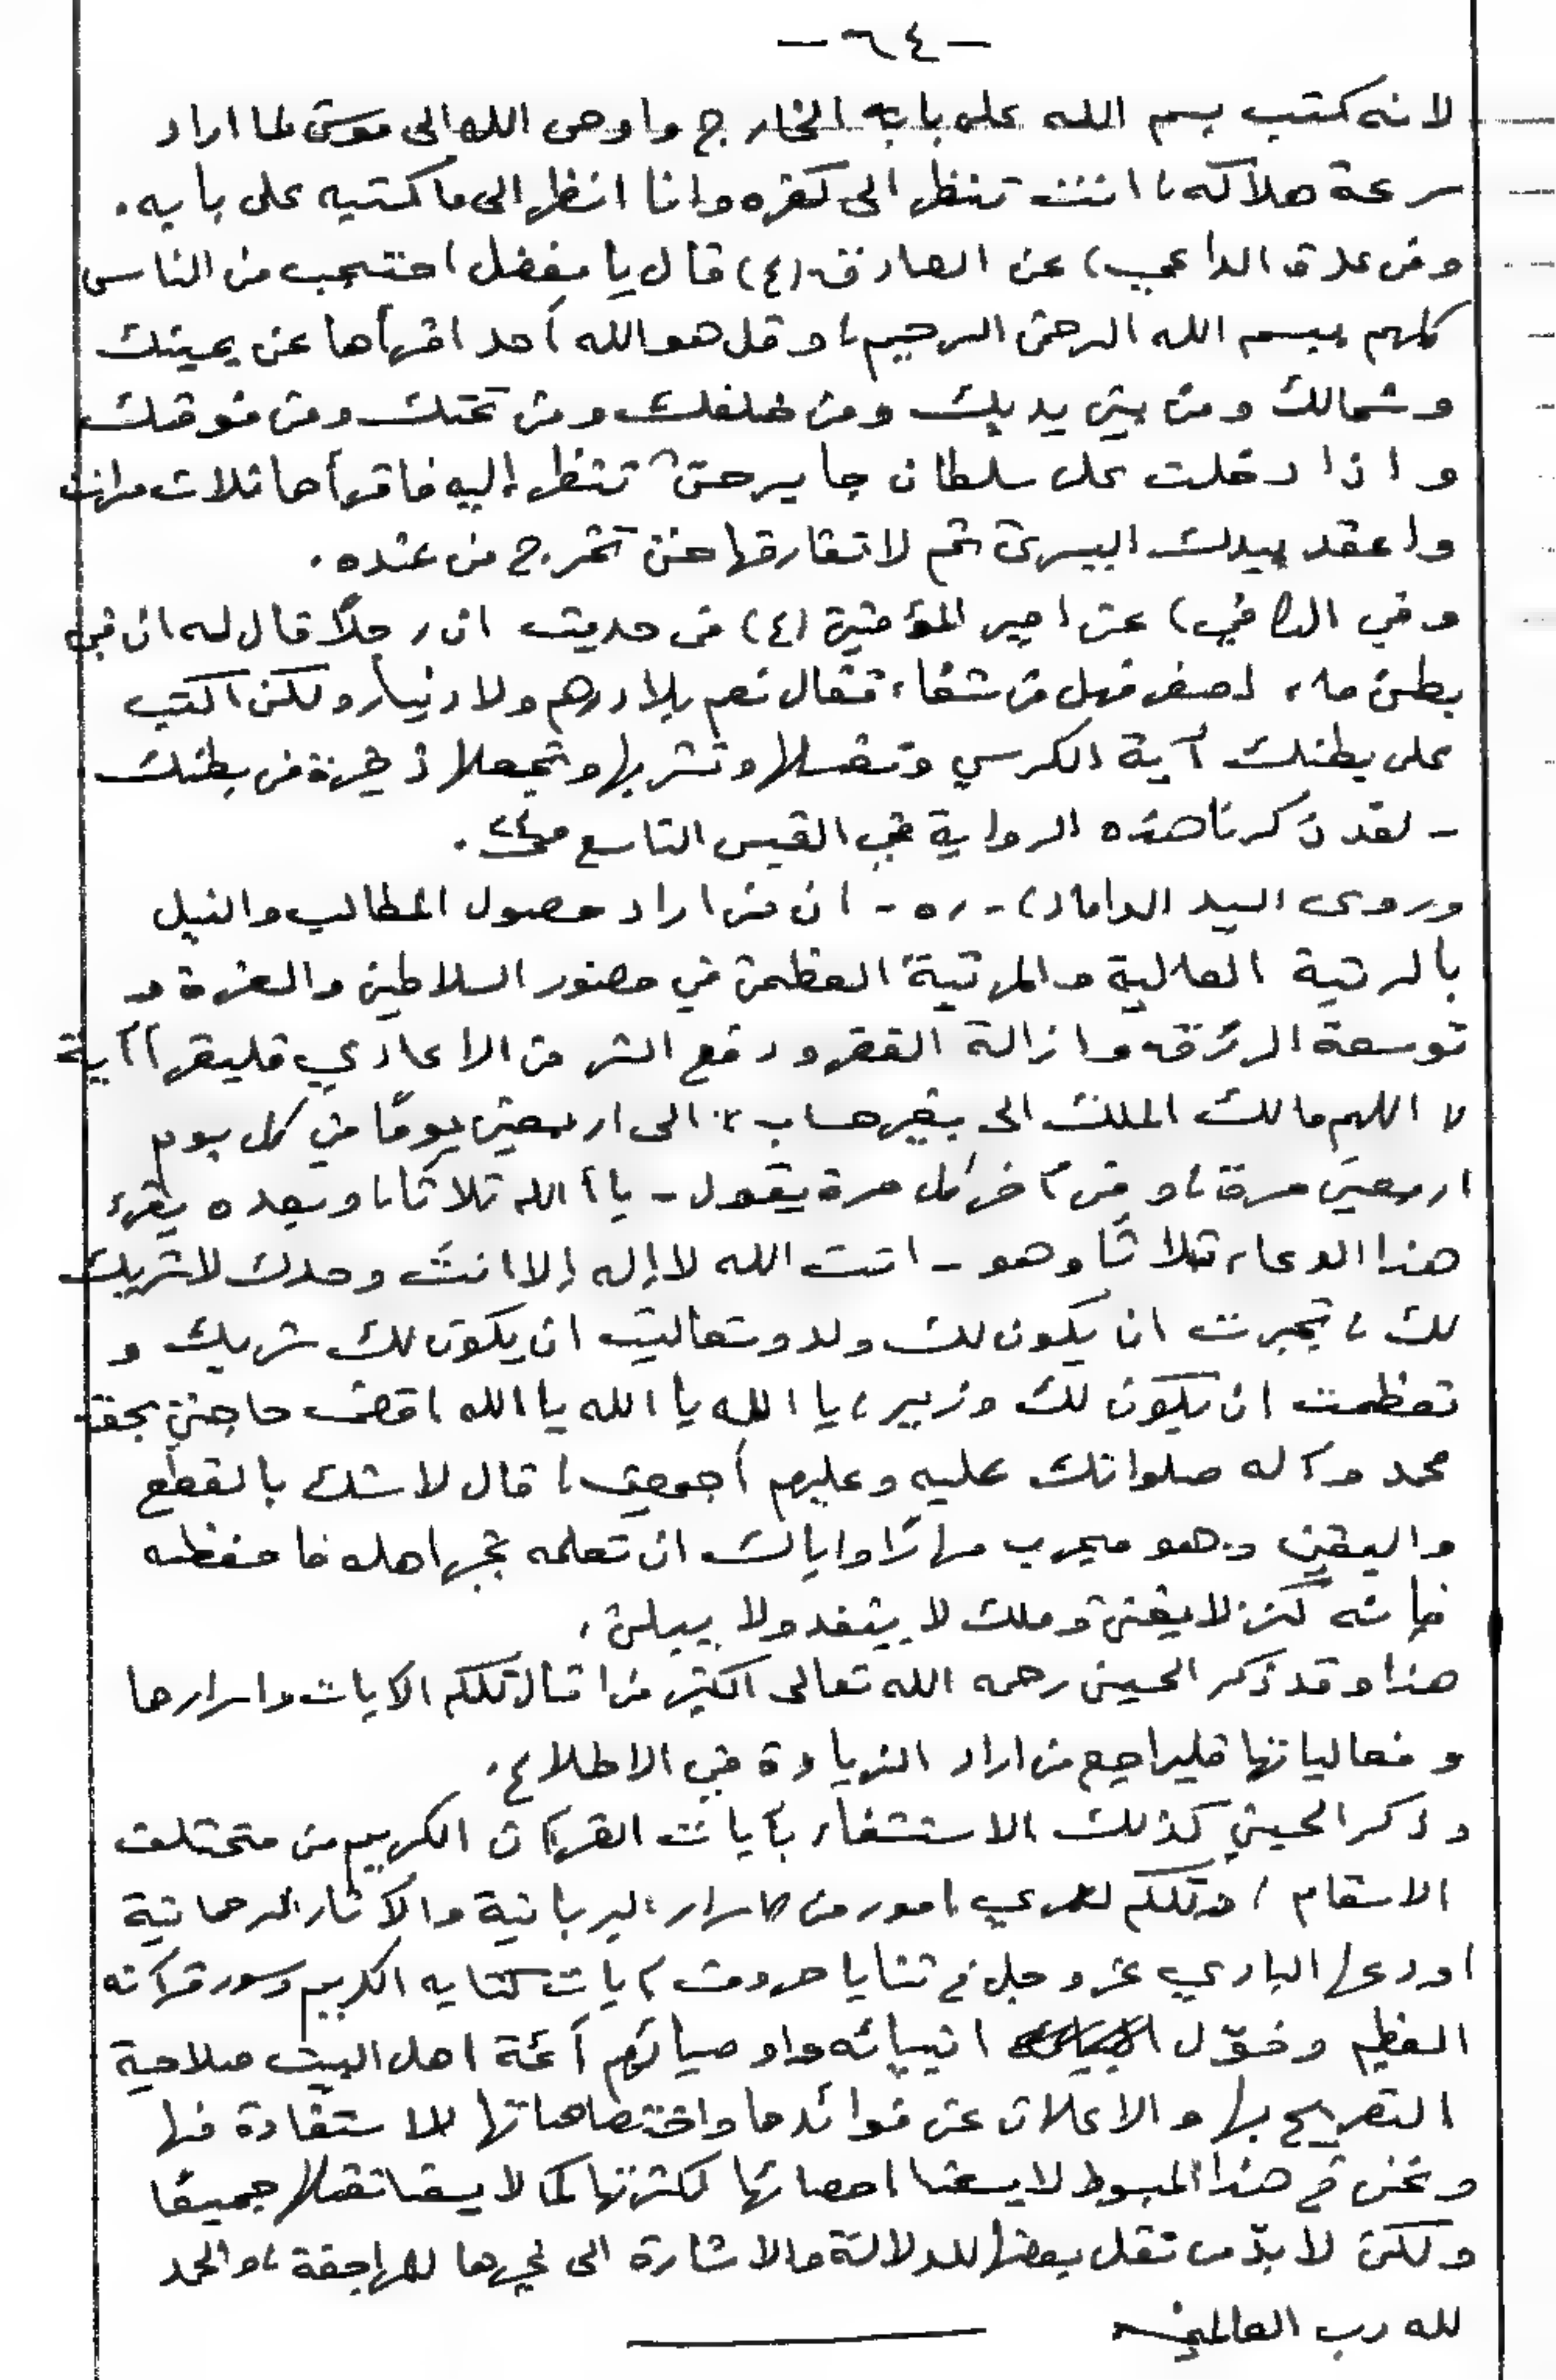 -٦٤-
لانه كتب بسم الله على بابه الخارج واوحى الله الى موسى لما اراد
سرعة هلاكه، انت تنظر الى كفره وانا انظر الى ما كتبه على بابه.
وفي عدة الداعي) عن الصادق (ع) قال يا مفضل احتجب من الناس
كلهم ببسم الله الرحمن الرحيم، وقل هو الله أحد اقرأها عن يمينك
وشمالك ومن بين يديك ومن خلفك ومن تحتك ومن فوقك
واذا دخلت على سلطان جاير حتى تنظر إليه فاقرأها ثلاث مرات
واعقد بيدك اليسرى ثم لا تفارقها حتى تخرج من عنده.
وفي الكافي) عن امير المؤمنين (ع) في حديث ان رجلاً قال له ان في
بطني ماء اصفر فهل من شفاء فقال نعم بلا درهم ولا دينار ولكن اكتب
على بطنك آية الكرسي وتغسلها وتشربها وتجعلها ذخيرة في بطنك
- لقد ذكرنا هذه الرواية في القبس التاسع
وروى السيد الداماد) - ره - ان من اراد حصول المطالب والنيل
بالرتبة العالية والمرتبة العظمى في حضور السلاطين والعزة و
توسعة الرزق وازالة الفقر ودفع الشر من الاعادي فليقرأ آية
، اللهم مالك الملك الى بغير حساب ،، الى اربعين يومًا في كل يوم
اربعين مرة، وفي آخر كل مرة يقول - يا الله ثلاثا، وبعده يقرء
هذا الدعاء ثلاثا وهو - انت الله لا إله إلا انت وحدك لا شريك
لك، تجبرت ان يكون لك ولد وتعاليت ان يكون لك شريك و
تعظمت ان يكون لك وزير، يا الله يا الله يا الله اقض حاجتي بحق
محمد وآله صلواتك عليه وعليهم أجمعين، قال لا شك بالقطع
واليقين وهو مجرب مرارًا واياك ان تعلمه بجهاهله فاحفظه
فإنه كنز لا يفنى وملك لا ينفد ولا يبلى،
هذا وقد ذكر الحسيني رحمه الله تعالى اكثر من امثال تلكم الآيات واسرارها
وفعالياتها فليراجع من اراد الزيادة في الاطلاع.
وذكر الحسيني كذلك الاستشفاء بآيات القرآن الكريم من مختلف
الاسقام، وتلكم لعمري امور من الاسرار الربانية والآثار الرحمانية
اودعها الباري عز وجل في ثنايا حروف آيات كتابه الكريم وسور قرآنه
العظيم وخوّل انبيائه واوصيائهم أئمة اهل البيت صلاحية
التصريح بها والاعلان عن فوائدها واختصاصاتها للاستفادة منها
ونحن في هذا المبسوط لا يسعنا احصائها لكثرتها كما لا يسعنا نقلها جميعًا
ولكن لا بدّ من نقل بعضها للدلالة والاشارة الى غيرها للمراجعة، والحمد
لله رب العالمين